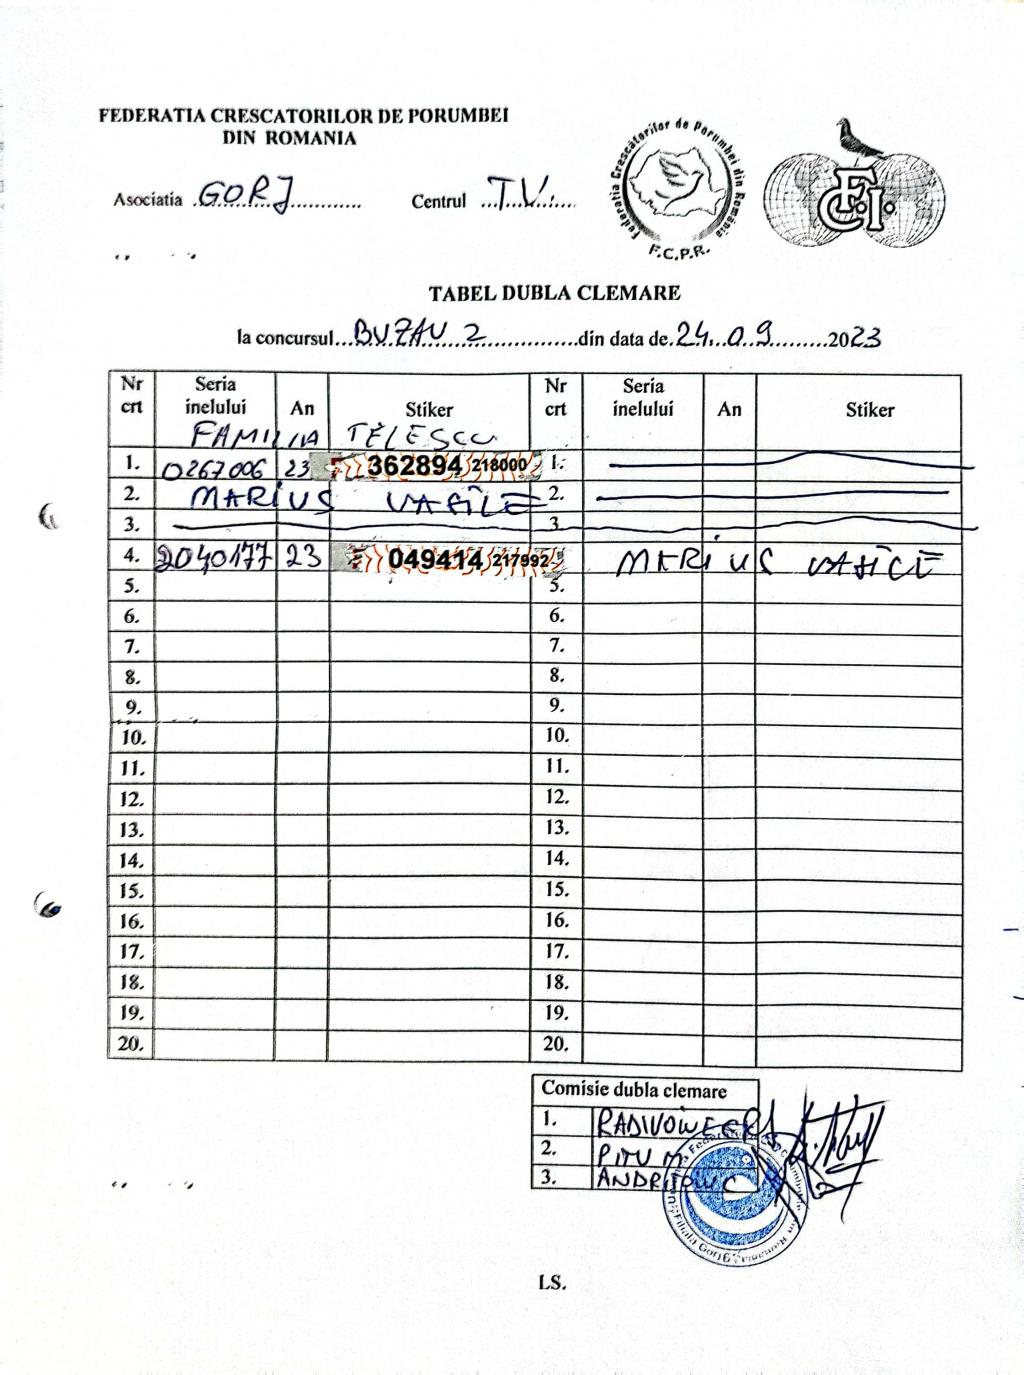 FEDERATIA CRESCATORILOR DE PORUMBEI
DIN ROMANIA
Asociatia GORJ Centrul T.V.
Federatia Crescătorilor de Porumbei din România
F.C.P.R.
F.C.I.
TABEL DUBLA CLEMARE
la concursul BUZAU 2 din data de 24.09 2023
Nr crt Seria inelului An Stiker Nr crt Seria inelului An Stiker
FAMILIA TELESCU
1. 0267006 23 362894 218000 1.
2. MARIUS VASILE 2.
3. 3.
4. 2040177 23 049414 217992 MARIUS VASILE
5. 5.
6. 6.
7. 7.
8. 8.
9. 9.
10. 10.
11. 11.
12. 12.
13. 13.
14. 14.
15. 15.
16. 16.
17. 17.
18. 18.
19. 19.
20. 20.
Comisie dubla clemare
1.
2. PITU M
3.
Filiala Gorj
LS.